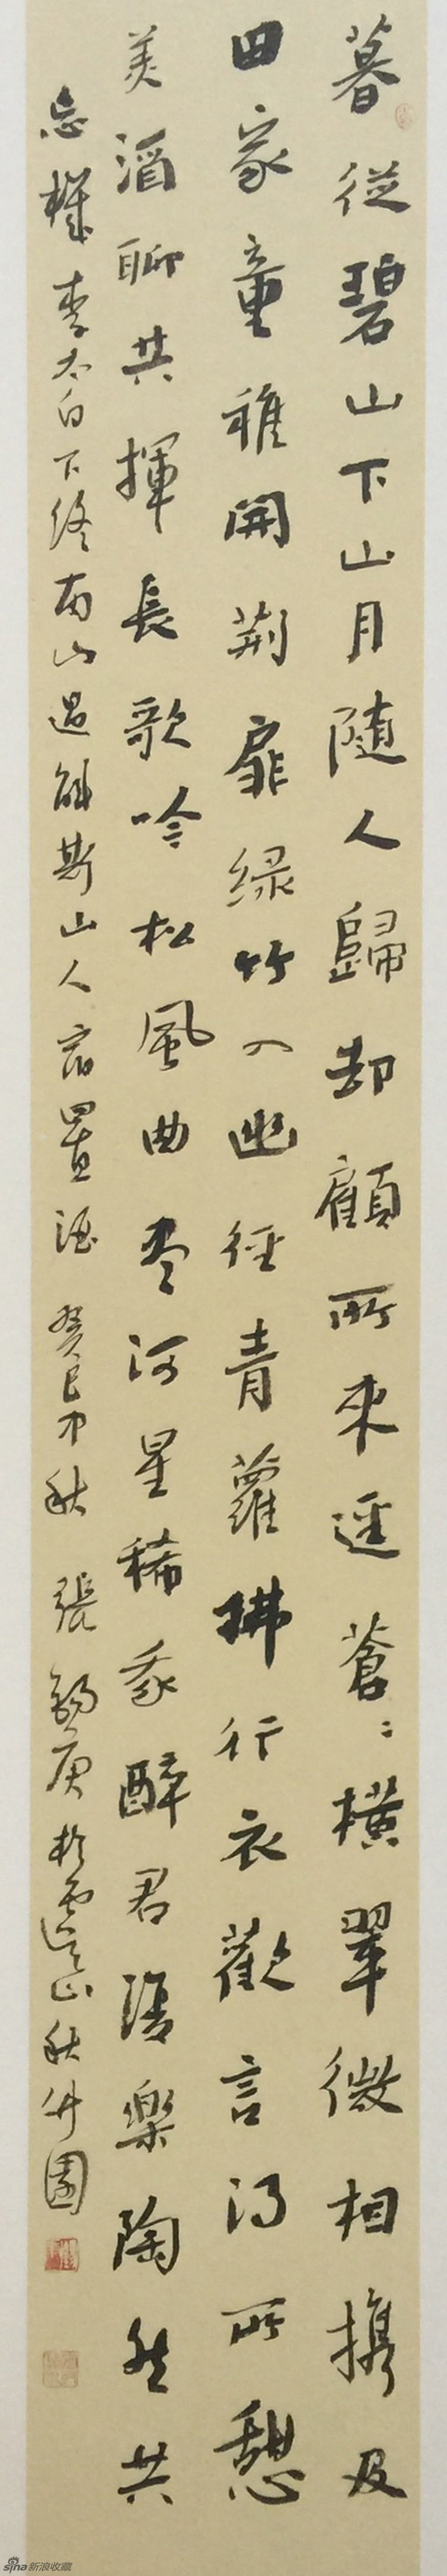 暮從碧山下山月隨人歸却顧所來逕蒼〻橫翠微相携及
田家童稚開荆扉绿竹入幽徑青蘿拂行衣歡言得所憩
美酒聊共揮長歌吟松風曲盡河星稀我醉君復樂陶然共
忘機 李太白下終南山過斛斯山人宿置酒 癸巳中秋 張錫庚於雲山秋竹園
sina新浪收藏